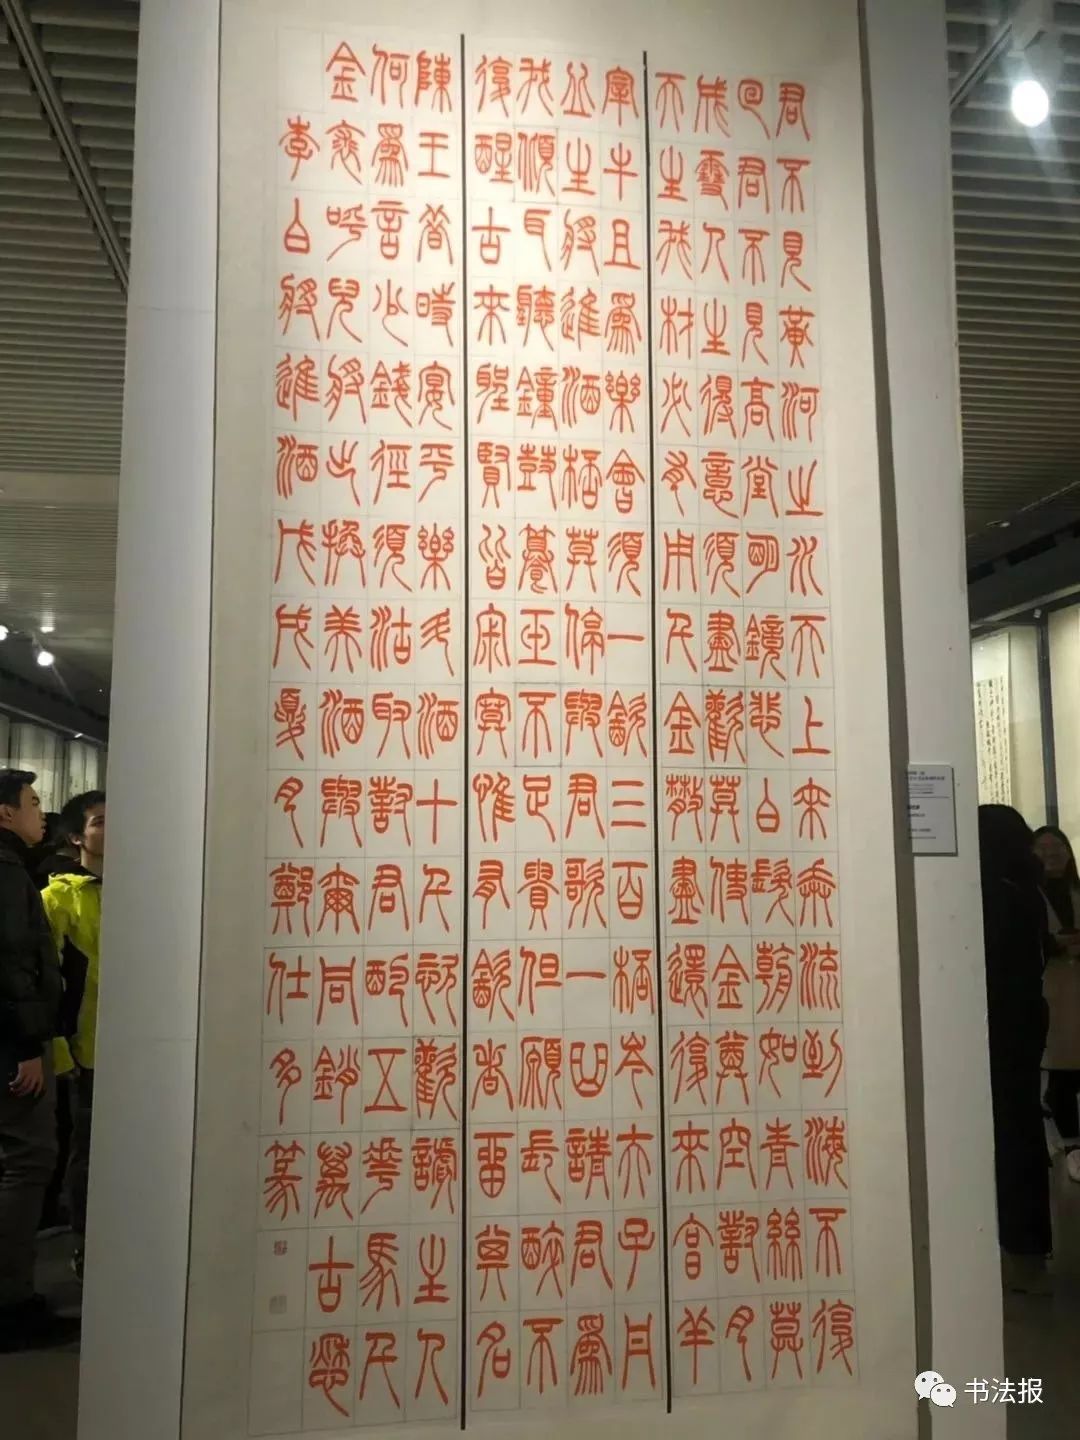 君不見黃河之水天上來奔流到海不復
回君不見高堂明鏡悲白髮朝如青絲莫
成雪人生得意須盡歡莫使金尊空對月
天生我材必有用千金散盡還復來亯羊
宰牛且爲樂會須一飲三百桮岑夫子丹
丘生將進酒桮莫停與君歌一曲請君爲
我傾耳聽鐘鼓饌玉不足貴但願長醉不
復醒古來聖賢皆寂寞惟有飲者留其名
陳王昔時宴平樂斗酒十千恣歡謔主人
何爲言少錢徑須沽取對君酌五花馬千
金裘呼兒將出換美酒與爾同銷萬古愁
李白將進酒戊戌夏月鄭仕多篆
书法报